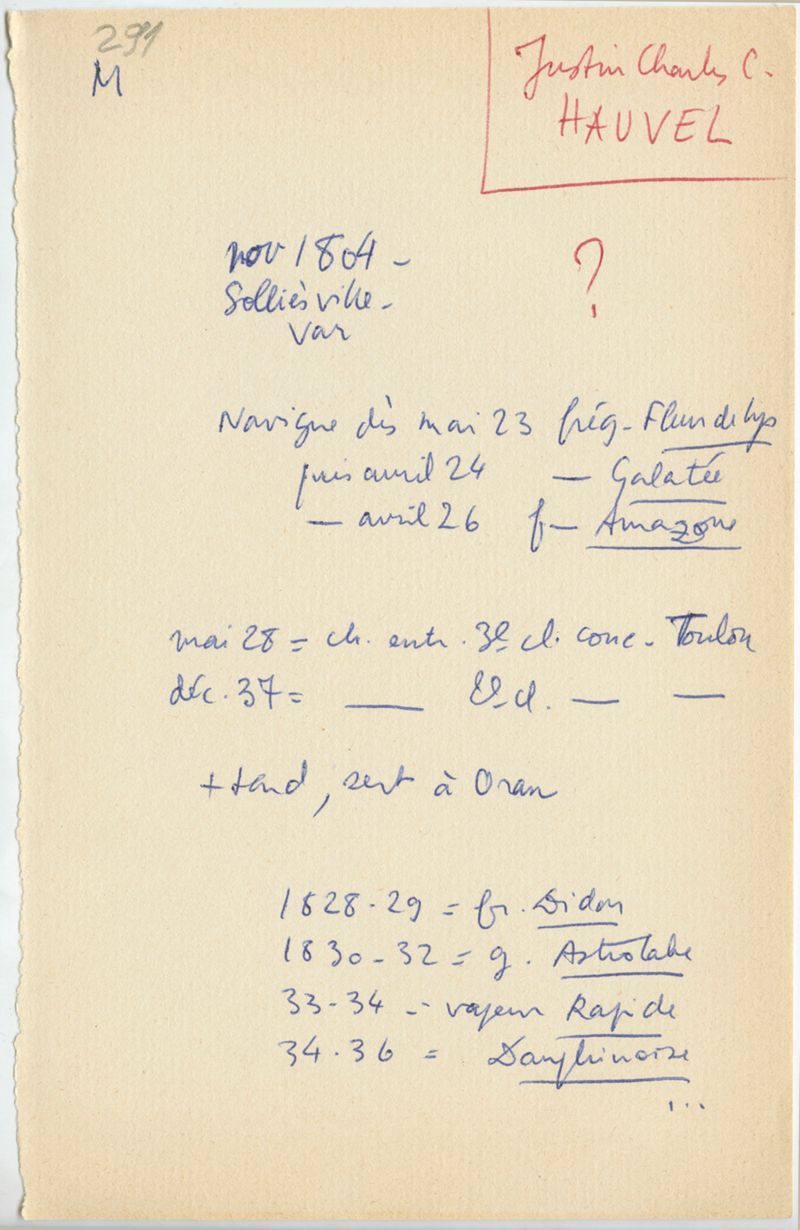 291
M
Justin Charles C.
HAUVEL
nov 1804 -
Sollièsville -
Var
?
Navigue dès mai 23 frég - Fleur de lys
puis avril 24 — Galatée
— avril 26 f — Amazone
mai 28 = ch. entr. 3e cl. conc - Toulon
déc. 37 = — 2e cl. — —
+ tard, sert à Oran
1828-29 = fr. Didon
1830-32 = g. Astrolabe
33-34 -- vapeur Rapide
34.36 = Dauphinoise
...